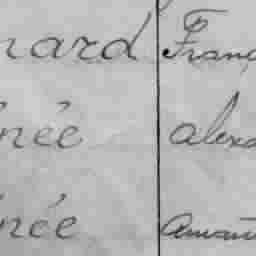 nard Franç
née alexa
née Aman